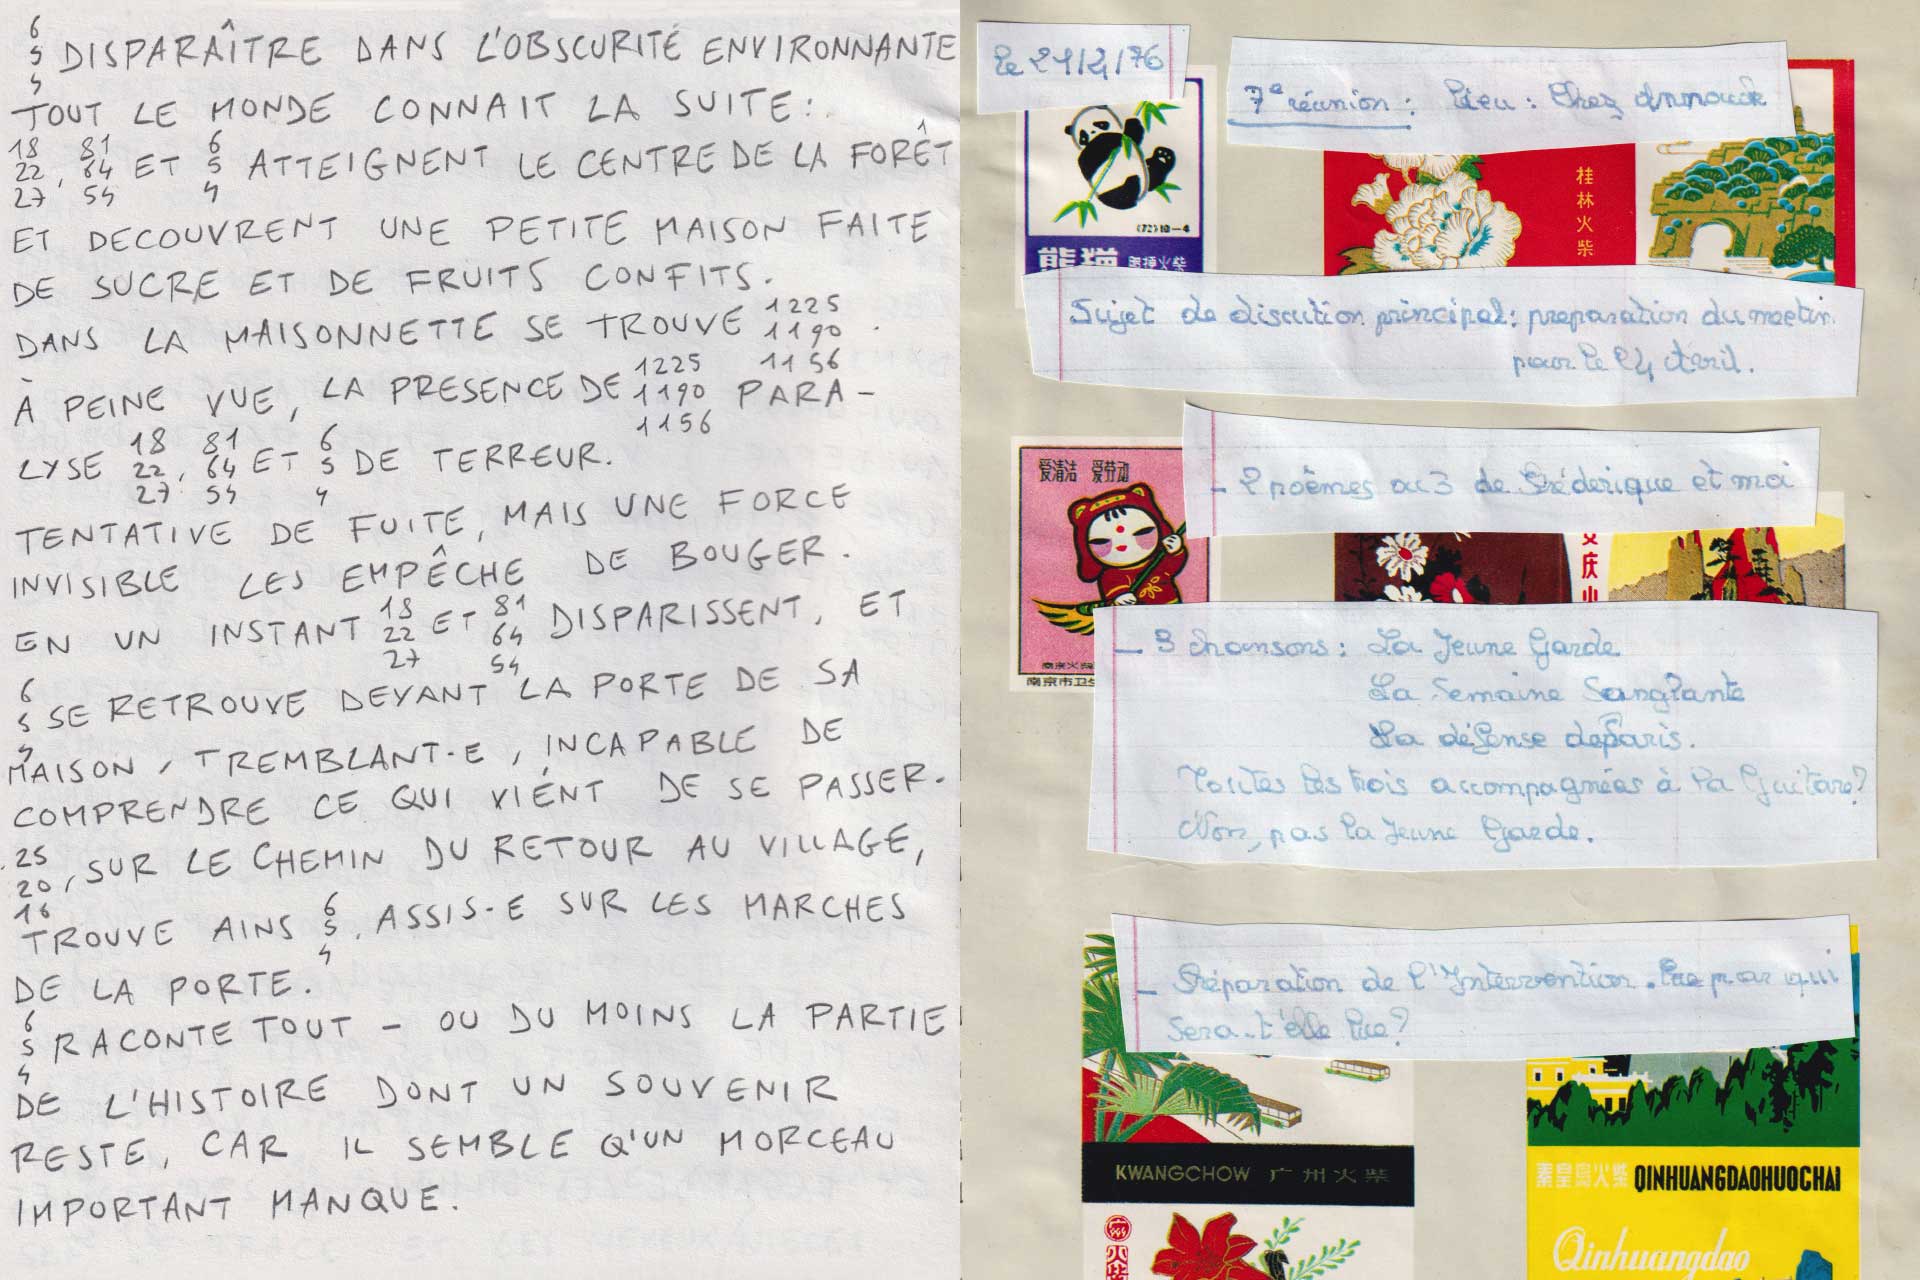 6
5
4 DISPARAÎTRE DANS L'OBSCURITÉ ENVIRONNANTE
TOUT LE MONDE CONNAIT LA SUITE :
18 81 6
22, 64 ET 5 ATTEIGNENT LE CENTRE DE LA FORÊT
27 54 4
ET DECOUVRENT UNE PETITE MAISON FAITE
DE SUCRE ET DE FRUITS CONFITS.
DANS LA MAISONNETTE SE TROUVE 1225
1190.
1156
À PEINE VUE, LA PRESENCE DE 1225
1190
1156 PARA-
LYSE 18 81 6
22, 64 ET 5 DE TERREUR.
27 54 4
TENTATIVE DE FUITE, MAIS UNE FORCE
INVISIBLE LES EMPÊCHE DE BOUGER.
EN UN INSTANT 18 81
22 ET 64 DISPARISSENT, ET
27 54
6
5 SE RETROUVE DEVANT LA PORTE DE SA
4
MAISON, TREMBLANT-E, INCAPABLE DE
COMPRENDRE CE QUI VIENT DE SE PASSER.
25
20, SUR LE CHEMIN DU RETOUR AU VILLAGE,
16
TROUVE AINS 6
5, ASSIS-E SUR LES MARCHES
4
DE LA PORTE.
6
5 RACONTE TOUT - OU DU MOINS LA PARTIE
4
DE L'HISTOIRE DONT UN SOUVENIR
RESTE, CAR IL SEMBLE Q'UN MORCEAU
IMPORTANT MANQUE.
le 21/4/76
7e réunion : Lieu : Chez Annouck
桂林火柴
(72)10-4
熊猫
Sujet de discution principal : preparation du meetin
pour le 24 Avril.
爱清洁 爱劳动
- 2 poèmes ou 3 de Fréderique et moi
庆火
南京火柴
南京市卫生
- 3 chansons : La Jeune Garde
La Semaine Sanglante
La défense de Paris.
Toutes les trois accompagnées à la Guitare?
Non, pas la Jeune Garde.
- Préparation de l'Intervention. Lue par qui
sera-t'elle lue?
KWANGCHOW 广州火柴
秦皇岛火柴 QINHUANGDAOHUOCHAI
Qinhuangdao
火柴